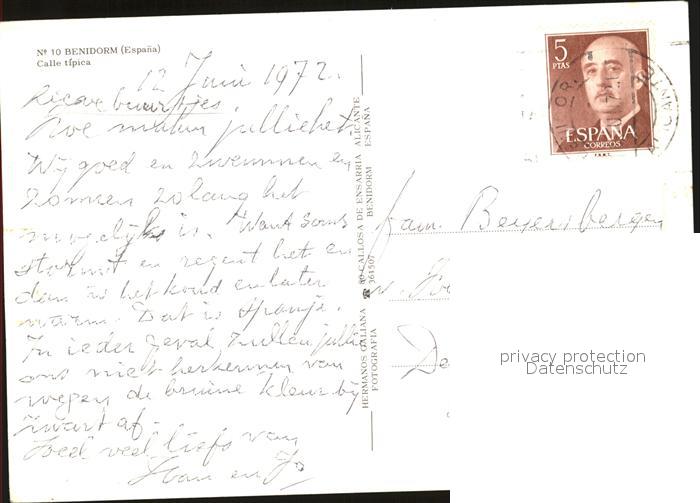 Nº 10 BENIDORM (España)
Calle típica
12 Juni 1972.
Lieve buurtjes.
Hoe maken jullie het
Wij goed en zwemmen en
zonnen zolang het
mogelijk is. Want soms
stormt en regent het en
dan is het koud en later
warm. Dat is Spanje.
In ieder geval zullen jullie
ons niet herkennen van
wegen de bruine kleur bij
zwart af.
Heel veel liefs van
en Jo
HERMANOS GALIANA
FOTOGRAFIA
80-CALLOSA DE ENSARRIA ALICANTE
☎ 361507 BENIDORM ESPAÑA
5
PTAS
ESPAÑA
CORREOS
F.N.M.T.
fam. Beyersbergen
v.
De
privacy protection
Datenschutz